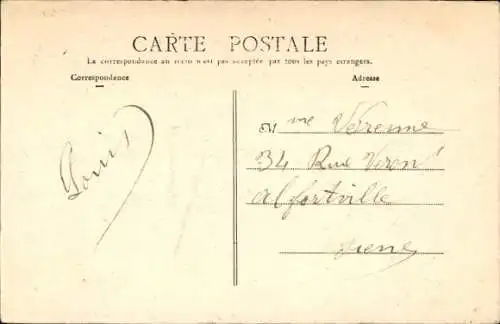 CARTE POSTALE
La correspondance au recto n'est pas acceptée par tous les pays étrangers.
Correspondance
Adresse
Louis
Mme
34 Rue Véron
alfortville
Seine